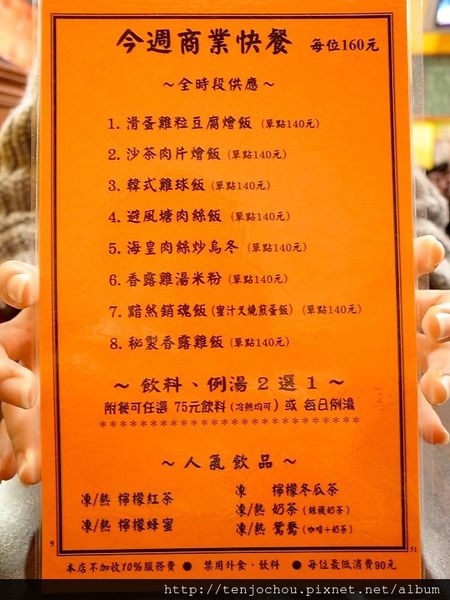 今週商業快餐 每位160元
～全時段供應～
1. 滑蛋雞粒豆腐燴飯 (單點140元)
2. 沙茶肉片燴飯 (單點140元)
3. 韓式雞球飯 (單點140元)
4. 避風塘肉絲飯 (單點140元)
5. 海皇肉絲炒烏冬 (單點140元)
6. 香露雞湯米粉 (單點140元)
7. 黯然銷魂飯 (蜜汁叉燒煎蛋飯) (單點140元)
8. 秘製香露雞飯 (單點140元)
～ 飲料、例湯 2 選 1 ～
附餐可任選 75元飲料 (冷熱均可) 或 每日例湯
～人氣飲品～
凍/熱 檸檬紅茶
凍 檸檬冬瓜茶
凍/熱 奶茶 (絲襪奶茶)
凍/熱 檸檬蜂蜜
凍/熱 鴛鴦 (咖啡＋奶茶)
9
51
本店不加收10%服務費 ● 禁用外食、飲料 ● 每位最低消費90元
http://tenjochou.pixnet.net/album